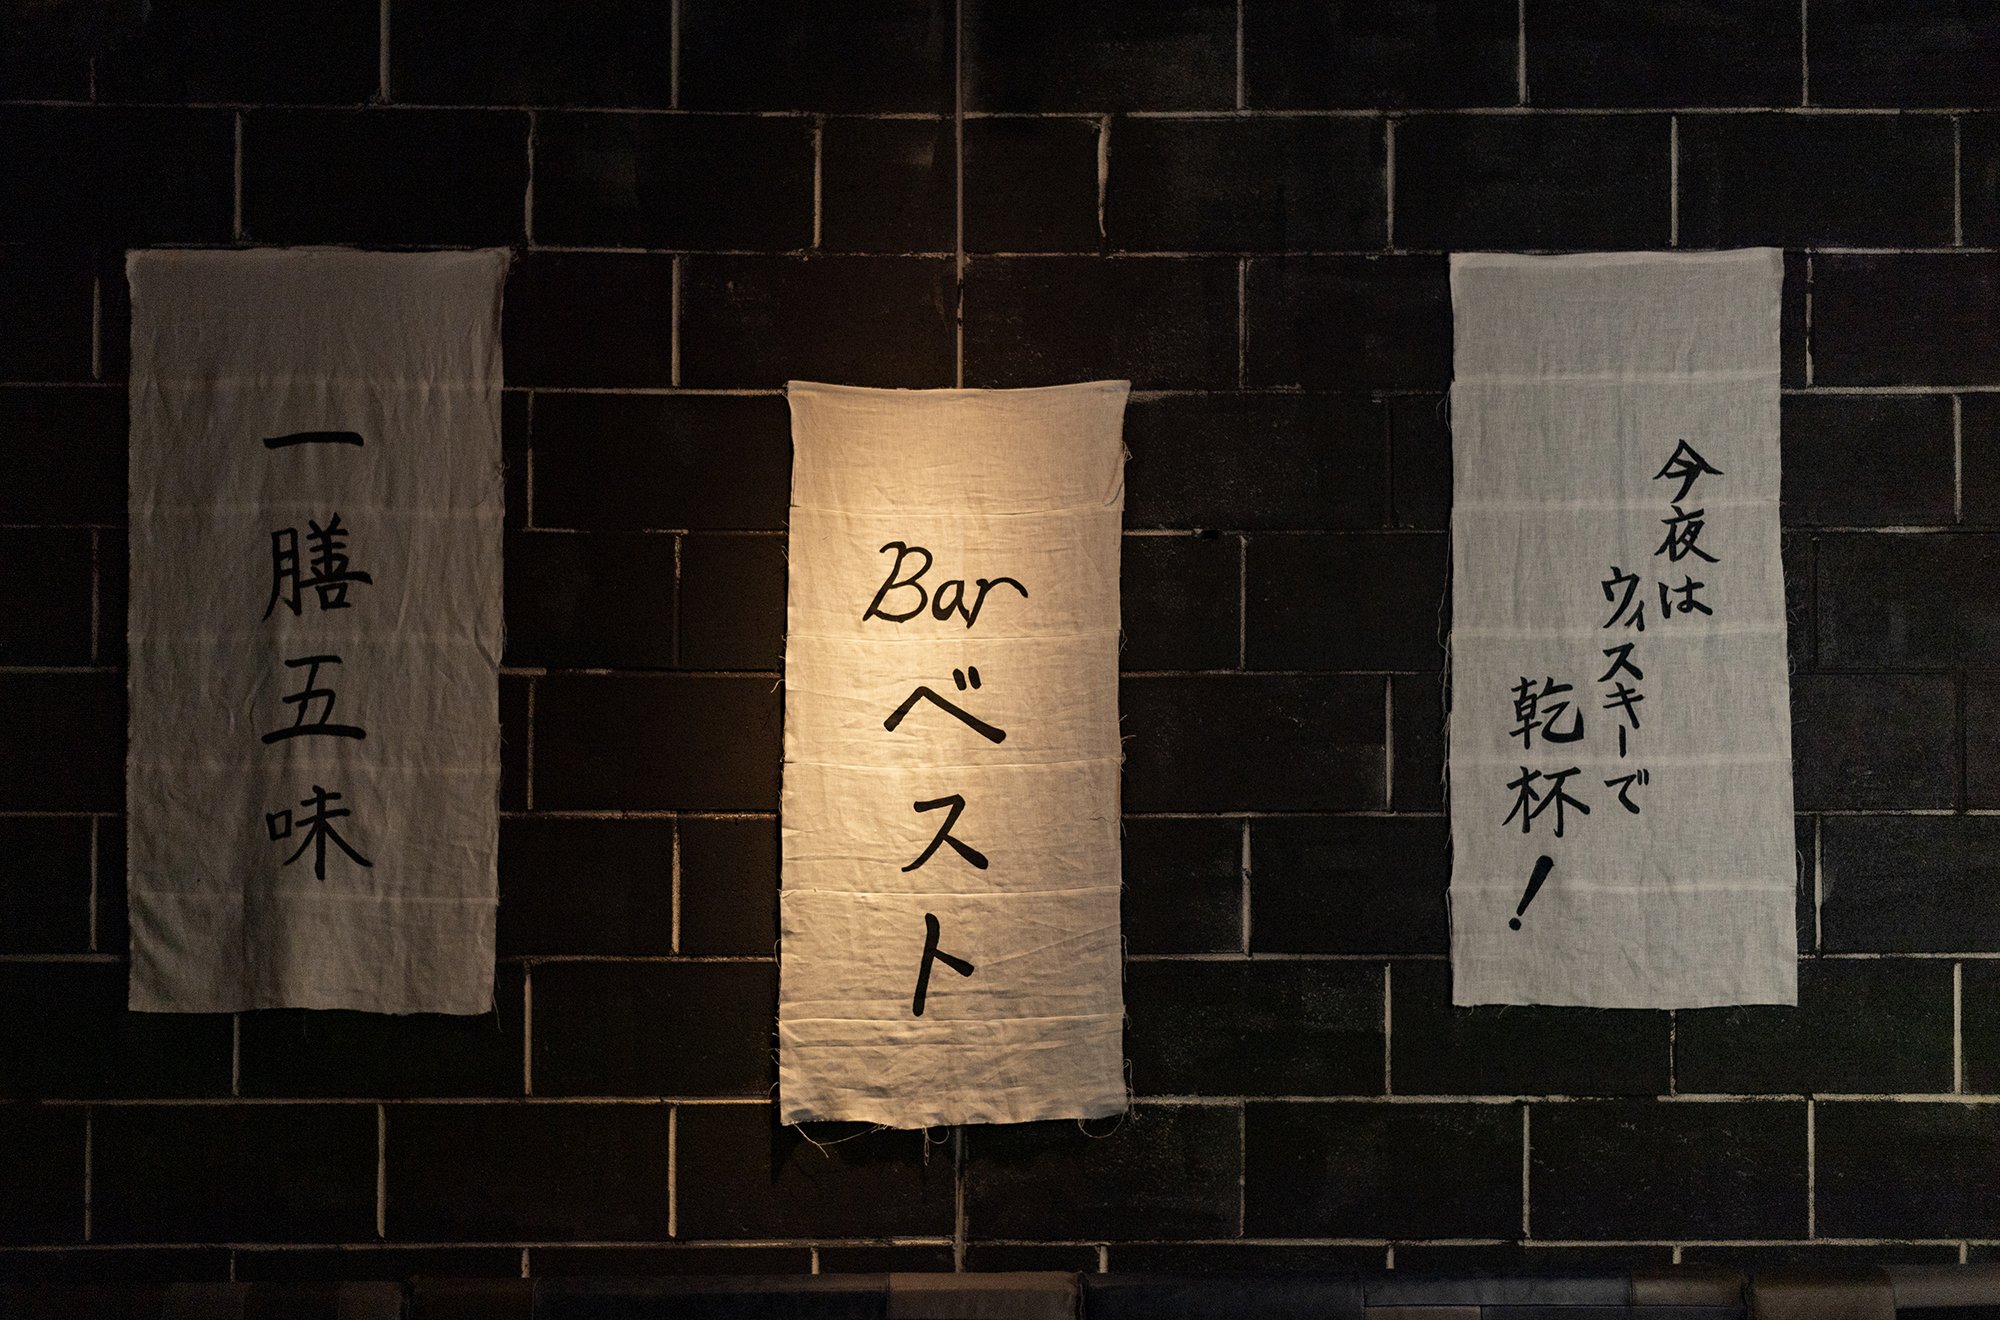 一膳五味
Bar
ベスト
今夜は
ウィスキーで
乾杯！